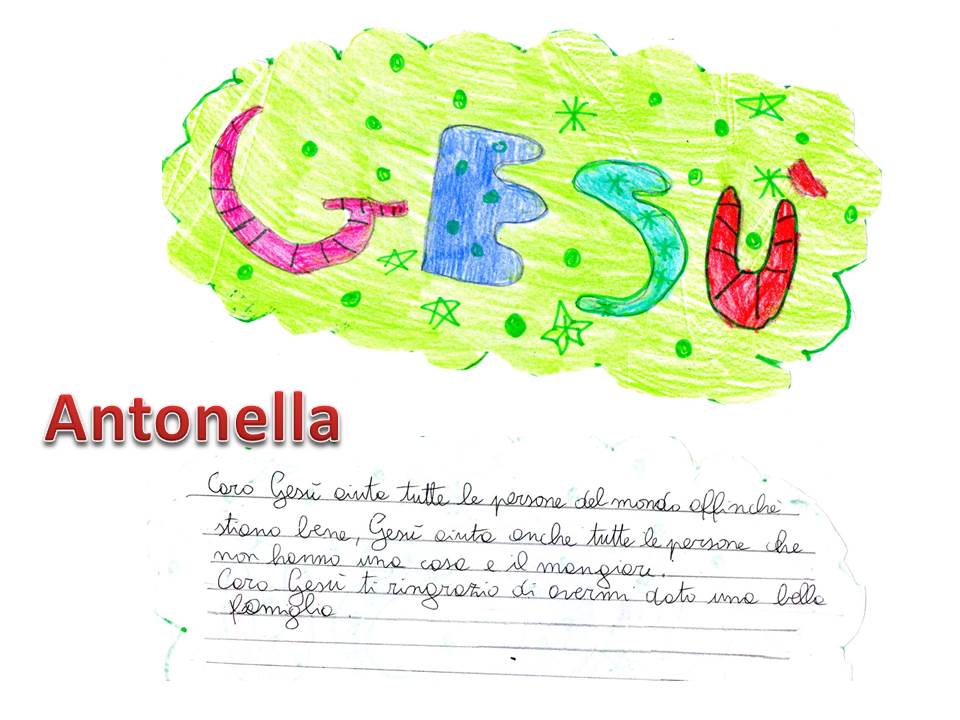 GESÙ
Antonella
Caro Gesù aiuta tutte le persone del mondo affinché
stiano bene, Gesù aiuta anche tutte le persone che
non hanno una casa e il mangiare.
Caro Gesù ti ringrazio di avermi dato una bella
famiglia.